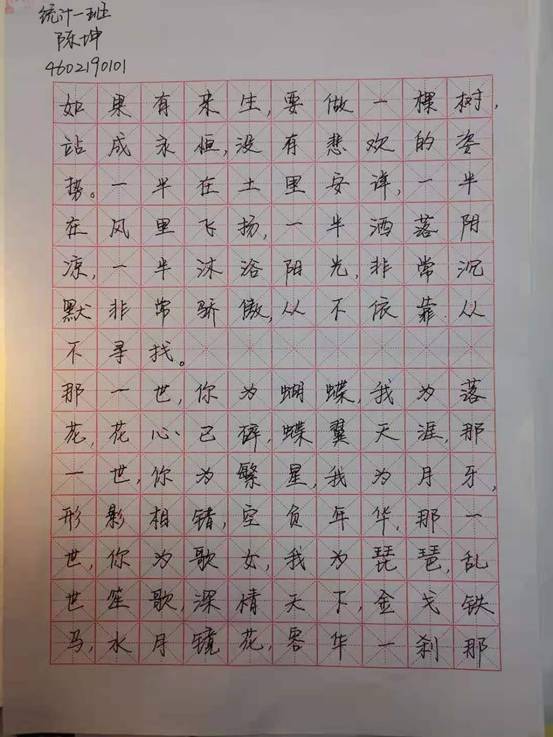 统计一班
陈坤
4602190101
如果有来生,要做一棵树,
站成永恒,没有悲欢的姿
势。一半在土里安详,一半
在风里飞扬,一半洒落阴
凉,一半沐浴阳光,非常沉
默非常骄傲,从不依靠从
不寻找。
那一世,你为蝴蝶,我为落
花,花心已碎,蝶翼天涯,那
一世,你为繁星,我为月牙,
形影相错,空负年华,那一
世,你为歌女,我为琵琶,乱
世笙歌,深情天下,金戈铁
马,水月镜花,容华一刹那